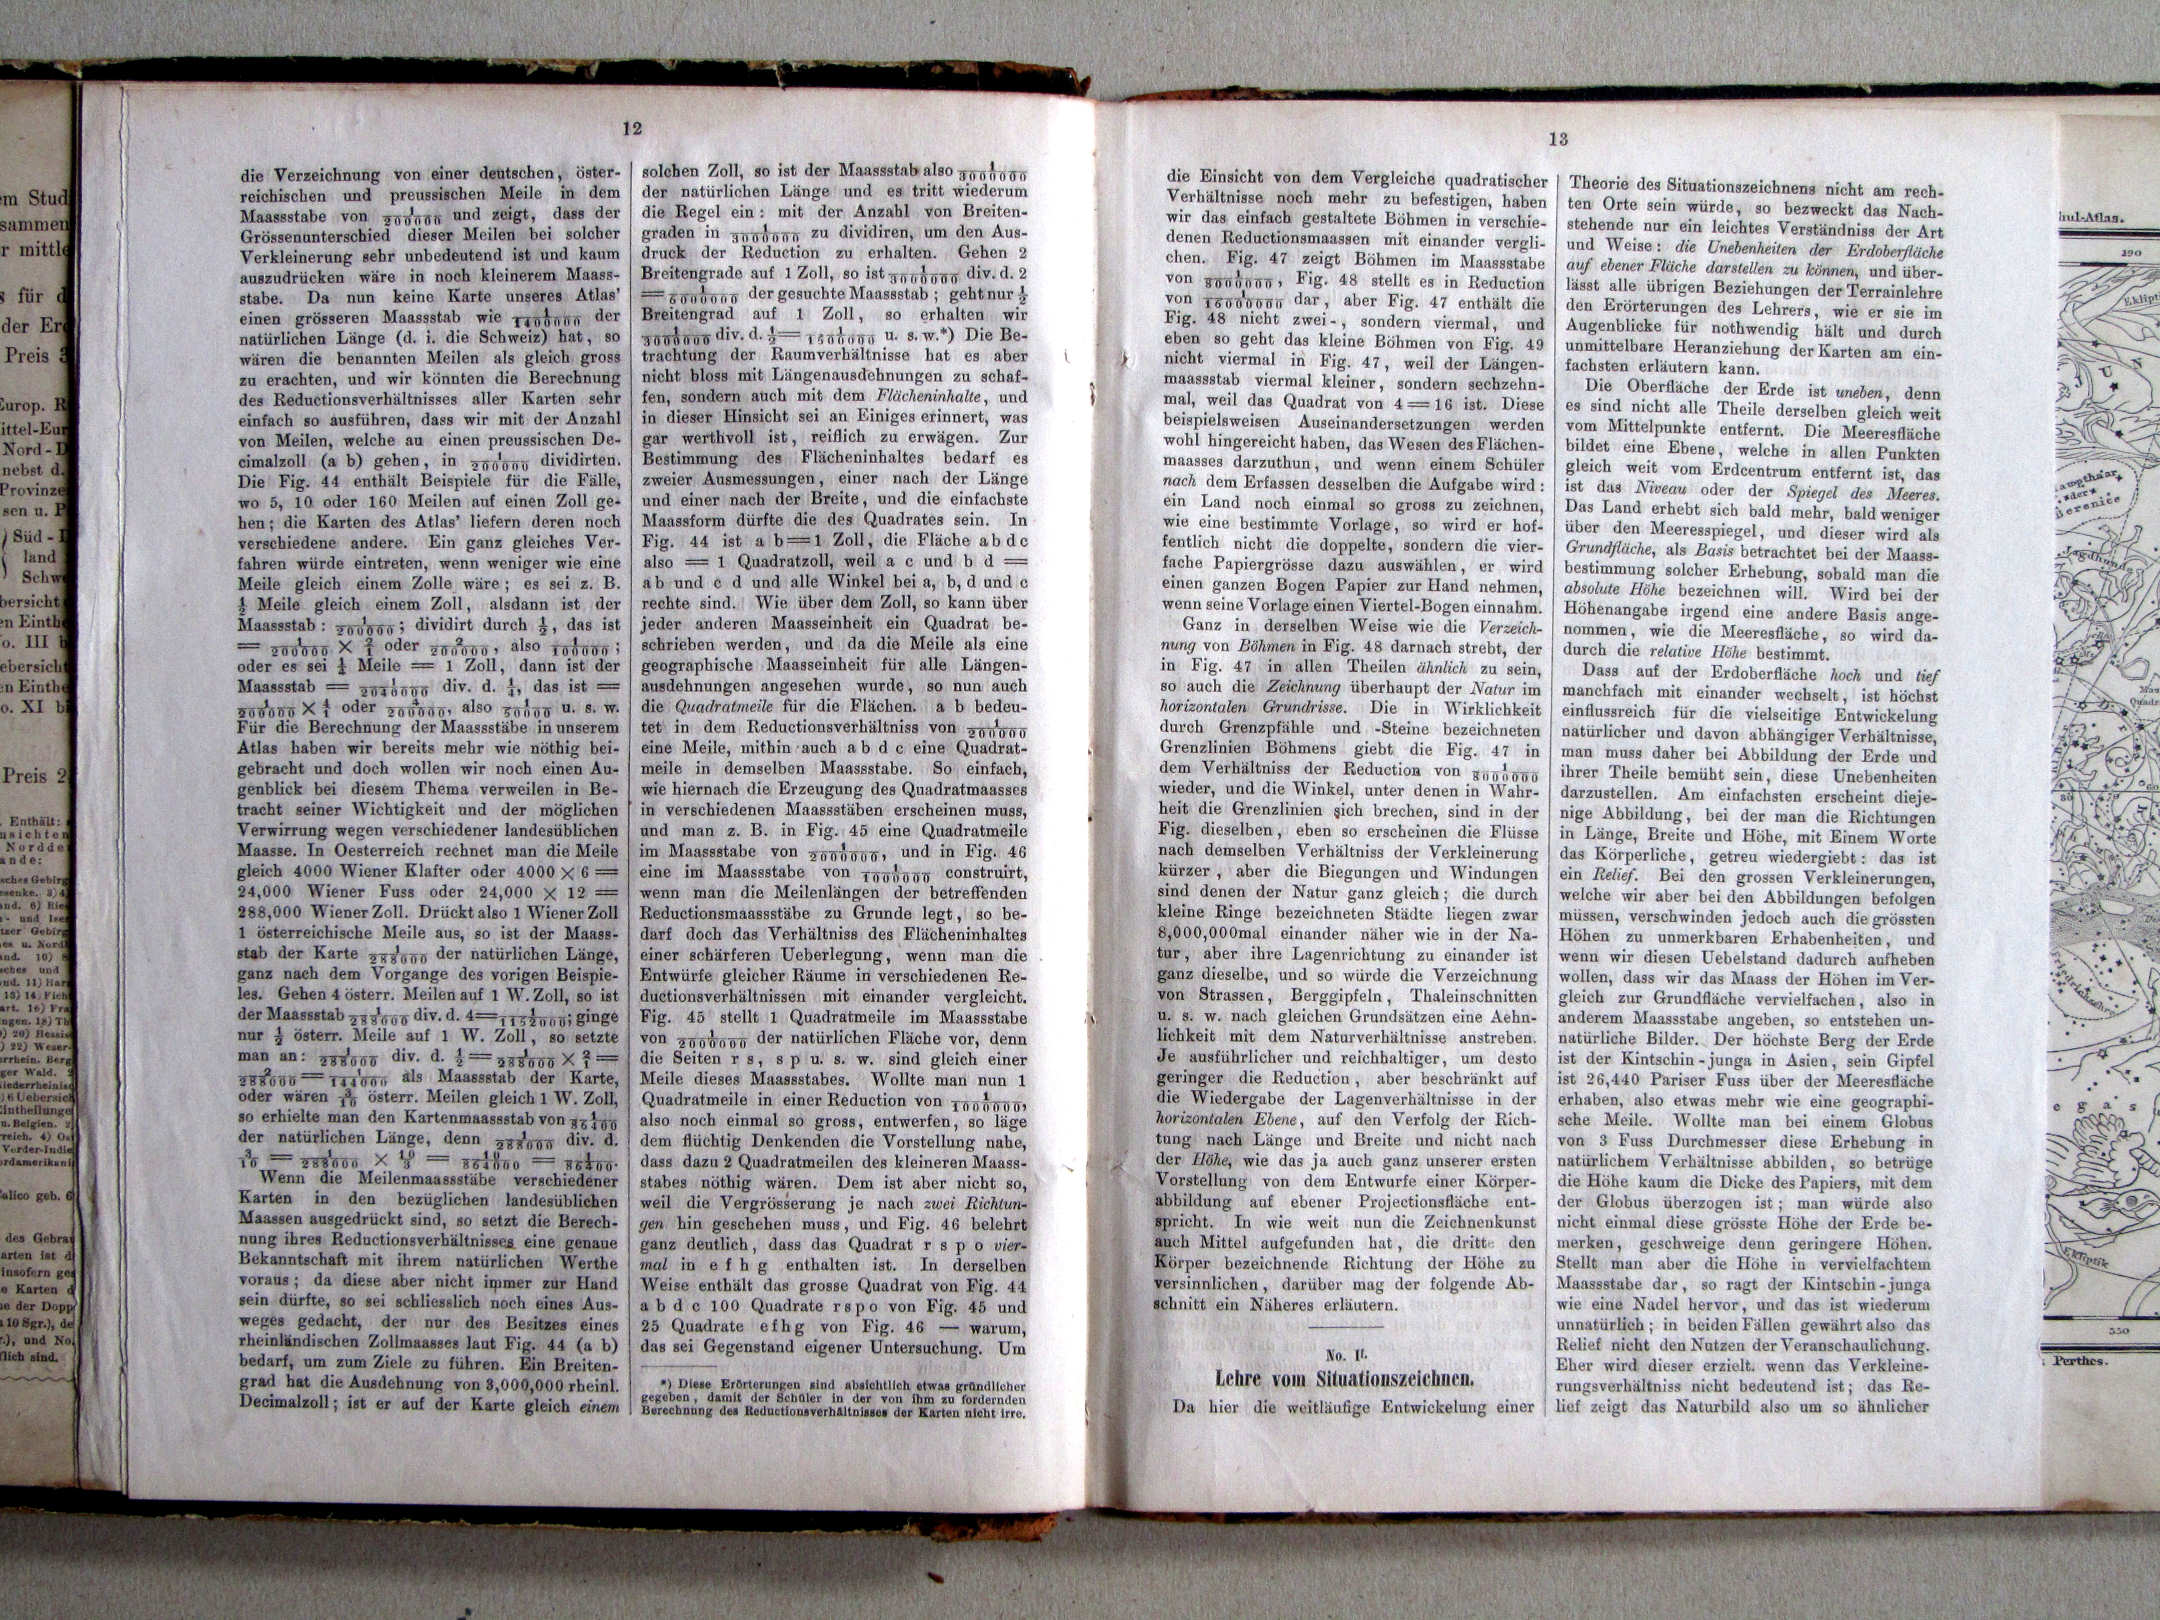 12
die Verzeichnung von einer deutschen, öster-
reichischen und preussischen Meile in dem
Maassstabe von 1/200000 und zeigt, dass der
Grössenunterschied dieser Meilen bei solcher
Verkleinerung sehr unbedeutend ist und kaum
auszudrücken wäre in noch kleinerem Maass-
stabe. Da nun keine Karte unseres Atlas'
einen grösseren Maassstab wie 1/1400000 der
natürlichen Länge (d. i. die Schweiz) hat, so
wären die benannten Meilen als gleich gross
zu erachten, und wir könnten die Berechnung
des Reductionsverhältnisses aller Karten sehr
einfach so ausführen, dass wir mit der Anzahl
von Meilen, welche au einen preussischen De-
cimalzoll (a b) gehen, in 1/200000 dividirten.
Die Fig. 44 enthält Beispiele für die Fälle,
wo 5, 10 oder 160 Meilen auf einen Zoll ge-
hen; die Karten des Atlas' liefern deren noch
verschiedene andere. Ein ganz gleiches Ver-
fahren würde eintreten, wenn weniger wie eine
Meile gleich einem Zolle wäre; es sei z. B.
1/2 Meile gleich einem Zoll, alsdann ist der
Maassstab: 1/200000; dividirt durch 1/2, das ist
= 1/200000 × 2/1 oder 2/200000, also 1/100000;
oder es sei 1/4 Meile = 1 Zoll, dann ist der
Maassstab = 1/2040000 div. d. 1/4, das ist =
1/200000 × 4/1 oder 4/200000, also 1/50000 u. s. w.
Für die Berechnung der Maassstäbe in unserem
Atlas haben wir bereits mehr wie nöthig bei-
gebracht und doch wollen wir noch einen Au-
genblick bei diesem Thema verweilen in Be-
tracht seiner Wichtigkeit und der möglichen
Verwirrung wegen verschiedener landesüblichen
Maasse. In Oesterreich rechnet man die Meile
gleich 4000 Wiener Klafter oder 4000 × 6 =
24,000 Wiener Fuss oder 24,000 × 12 =
288,000 Wiener Zoll. Drückt also 1 Wiener Zoll
1 österreichische Meile aus, so ist der Maass-
stab der Karte 1/288000 der natürlichen Länge,
ganz nach dem Vorgange des vorigen Beispie-
les. Gehen 4 österr. Meilen auf 1 W. Zoll, so ist
der Maassstab 1/288000 div. d. 4=1/1152000; ginge
nur 1/2 österr. Meile auf 1 W. Zoll, so setzte
man an: 1/288000 div. d. 1/2 = 1/288000 × 2/1 =
2/288000 = 1/144000 als Maassstab der Karte,
oder wären 3/10 österr. Meilen gleich 1 W. Zoll,
so erhielte man den Kartenmaassstab von 1/86400
der natürlichen Länge, denn 1/288000 div. d.
3/10 = 1/288000 × 10/3 = 10/864000 = 1/86400.
Wenn die Meilenmaassstäbe verschiedener
Karten in den bezüglichen landesüblichen
Maassen ausgedrückt sind, so setzt die Berech-
nung ihres Reductionsverhältnisses eine genaue
Bekanntschaft mit ihrem natürlichen Werthe
voraus; da diese aber nicht immer zur Hand
sein dürfte, so sei schliesslich noch eines Aus-
weges gedacht, der nur des Besitzes eines
rheinländischen Zollmaasses laut Fig. 44 (a b)
bedarf, um zum Ziele zu führen. Ein Breiten-
grad hat die Ausdehnung von 3,000,000 rheinl.
Decimalzoll; ist er auf der Karte gleich einem
solchen Zoll, so ist der Maassstab also 1/3000000
der natürlichen Länge und es tritt wiederum
die Regel ein: mit der Anzahl von Breiten-
graden in 1/3000000 zu dividiren, um den Aus-
druck der Reduction zu erhalten. Gehen 2
Breitengrade auf 1 Zoll, so ist 1/3000000 div. d. 2
= 1/6000000 der gesuchte Maassstab; geht nur 1/2
Breitengrad auf 1 Zoll, so erhalten wir
1/3000000 div. d. 1/2 = 1/1500000 u. s. w.*) Die Be-
trachtung der Raumverhältnisse hat es aber
nicht bloss mit Längenausdehnungen zu schaf-
fen, sondern auch mit dem Flächeninhalte, und
in dieser Hinsicht sei an Einiges erinnert, was
gar werthvoll ist, reiflich zu erwägen. Zur
Bestimmung des Flächeninhaltes bedarf es
zweier Ausmessungen, einer nach der Länge
und einer nach der Breite, und die einfachste
Maassform dürfte die des Quadrates sein. In
Fig. 44 ist a b=1 Zoll, die Fläche a b d c
also = 1 Quadratzoll, weil a c und b d =
a b und c d und alle Winkel bei a, b, d und c
rechte sind. Wie über dem Zoll, so kann über
jeder anderen Maasseinheit ein Quadrat be-
schrieben werden, und da die Meile als eine
geographische Maasseinheit für alle Längen-
ausdehnungen angesehen wurde, so nun auch
die Quadratmeile für die Flächen. a b bedeu-
tet in dem Reductionsverhältniss von 1/200000
eine Meile, mithin auch a b d c eine Quadrat-
meile in demselben Maassstabe. So einfach,
wie hiernach die Erzeugung des Quadratmaasses
in verschiedenen Maassstäben erscheinen muss,
und man z. B. in Fig. 45 eine Quadratmeile
im Maassstabe von 1/2000000, und in Fig. 46
eine im Maassstabe von 1/1000000 construirt,
wenn man die Meilenlängen der betreffenden
Reductionsmaassstäbe zu Grunde legt, so be-
darf doch das Verhältniss des Flächeninhaltes
einer schärferen Ueberlegung, wenn man die
Entwürfe gleicher Räume in verschiedenen Re-
ductionsverhältnissen mit einander vergleicht.
Fig. 45 stellt 1 Quadratmeile im Maassstabe
von 1/2000000 der natürlichen Fläche vor, denn
die Seiten r s, s p u. s. w. sind gleich einer
Meile dieses Maassstabes. Wollte man nun 1
Quadratmeile in einer Reduction von 1/1000000,
also noch einmal so gross, entwerfen, so läge
dem flüchtig Denkenden die Vorstellung nahe,
dass dazu 2 Quadratmeilen des kleineren Maass-
stabes nöthig wären. Dem ist aber nicht so,
weil die Vergrösserung je nach zwei Richtun-
gen hin geschehen muss, und Fig. 46 belehrt
ganz deutlich, dass das Quadrat r s p o vier-
mal in e f h g enthalten ist. In derselben
Weise enthält das grosse Quadrat von Fig. 44
a b d c 100 Quadrate r s p o von Fig. 45 und
25 Quadrate e f h g von Fig. 46 — warum,
das sei Gegenstand eigener Untersuchung. Um
*) Diese Erörterungen sind absichtlich etwas gründlicher
gegeben, damit der Schüler in der von ihm zu fordernden
Berechnung des Reductionsverhältnisses der Karten nicht irre.
13
die Einsicht von dem Vergleiche quadratischer
Verhältnisse noch mehr zu befestigen, haben
wir das einfach gestaltete Böhmen in verschie-
denen Reductionsmaassen mit einander vergli-
chen. Fig. 47 zeigt Böhmen im Maassstabe
von 1/8000000, Fig. 48 stellt es in Reduction
von 1/16000000 dar, aber Fig. 47 enthält die
Fig. 48 nicht zwei-, sondern viermal, und
eben so geht das kleine Böhmen von Fig. 49
nicht viermal in Fig. 47, weil der Längen-
maassstab viermal kleiner, sondern sechzehn-
mal, weil das Quadrat von 4=16 ist. Diese
beispielsweisen Auseinandersetzungen werden
wohl hingereicht haben, das Wesen des Flächen-
maasses darzuthun, und wenn einem Schüler
nach dem Erfassen desselben die Aufgabe wird:
ein Land noch einmal so gross zu zeichnen,
wie eine bestimmte Vorlage, so wird er hof-
fentlich nicht die doppelte, sondern die vier-
fache Papiergrösse dazu auswählen, er wird
einen ganzen Bogen Papier zur Hand nehmen,
wenn seine Vorlage einen Viertel-Bogen einnahm.
Ganz in derselben Weise wie die Verzeich-
nung von Böhmen in Fig. 48 darnach strebt, der
in Fig. 47 in allen Theilen ähnlich zu sein,
so auch die Zeichnung überhaupt der Natur im
horizontalen Grundrisse. Die in Wirklichkeit
durch Grenzpfähle und -Steine bezeichneten
Grenzlinien Böhmens giebt die Fig. 47 in
dem Verhältniss der Reduction von 1/8000000
wieder, und die Winkel, unter denen in Wahr-
heit die Grenzlinien sich brechen, sind in der
Fig. dieselben, eben so erscheinen die Flüsse
nach demselben Verhältniss der Verkleinerung
kürzer, aber die Biegungen und Windungen
sind denen der Natur ganz gleich; die durch
kleine Ringe bezeichneten Städte liegen zwar
8,000,000mal einander näher wie in der Na-
tur, aber ihre Lagenrichtung zu einander ist
ganz dieselbe, und so würde die Verzeichnung
von Strassen, Berggipfeln, Thaleinschnitten
u. s. w. nach gleichen Grundsätzen eine Aehn-
lichkeit mit dem Naturverhältnisse anstreben.
Je ausführlicher und reichhaltiger, um desto
geringer die Reduction, aber beschränkt auf
die Wiedergabe der Lagenverhältnisse in der
horizontalen Ebene, auf den Verfolg der Rich-
tung nach Länge und Breite und nicht nach
der Höhe, wie das ja auch ganz unserer ersten
Vorstellung von dem Entwurfe einer Körper-
abbildung auf ebener Projectionsfläche ent-
spricht. In wie weit nun die Zeichnenkunst
auch Mittel aufgefunden hat, die dritte den
Körper bezeichnende Richtung der Höhe zu
versinnlichen, darüber mag der folgende Ab-
schnitt ein Näheres erläutern.
No. II.
Lehre vom Situationszeichnen.
Da hier die weitläufige Entwickelung einer
Theorie des Situationszeichnens nicht am rech-
ten Orte sein würde, so bezweckt das Nach-
stehende nur ein leichtes Verständniss der Art
und Weise: die Unebenheiten der Erdoberfläche
auf ebener Fläche darstellen zu können, und über-
lässt alle übrigen Beziehungen der Terrainlehre
den Erörterungen des Lehrers, wie er sie im
Augenblicke für nothwendig hält und durch
unmittelbare Heranziehung der Karten am ein-
fachsten erläutern kann.
Die Oberfläche der Erde ist uneben, denn
es sind nicht alle Theile derselben gleich weit
vom Mittelpunkte entfernt. Die Meeresfläche
bildet eine Ebene, welche in allen Punkten
gleich weit vom Erdcentrum entfernt ist, das
ist das Niveau oder der Spiegel des Meeres.
Das Land erhebt sich bald mehr, bald weniger
über den Meeresspiegel, und dieser wird als
Grundfläche, als Basis betrachtet bei der Maass-
bestimmung solcher Erhebung, sobald man die
absolute Höhe bezeichnen will. Wird bei der
Höhenangabe irgend eine andere Basis ange-
nommen, wie die Meeresfläche, so wird da-
durch die relative Höhe bestimmt.
Dass auf der Erdoberfläche hoch und tief
manchfach mit einander wechselt, ist höchst
einflussreich für die vielseitige Entwickelung
natürlicher und davon abhängiger Verhältnisse,
man muss daher bei Abbildung der Erde und
ihrer Theile bemüht sein, diese Unebenheiten
darzustellen. Am einfachsten erscheint dieje-
nige Abbildung, bei der man die Richtungen
in Länge, Breite und Höhe, mit Einem Worte
das Körperliche, getreu wiedergiebt: das ist
ein Relief. Bei den grossen Verkleinerungen,
welche wir aber bei den Abbildungen befolgen
müssen, verschwinden jedoch auch die grössten
Höhen zu unmerkbaren Erhabenheiten, und
wenn wir diesen Uebelstand dadurch aufheben
wollen, dass wir das Maass der Höhen im Ver-
gleich zur Grundfläche vervielfachen, also in
anderem Maassstabe angeben, so entstehen un-
natürliche Bilder. Der höchste Berg der Erde
ist der Kintschin-junga in Asien, sein Gipfel
ist 26,440 Pariser Fuss über der Meeresfläche
erhaben, also etwas mehr wie eine geographi-
sche Meile. Wollte man bei einem Globus
von 3 Fuss Durchmesser diese Erhebung in
natürlichem Verhältnisse abbilden, so betrüge
die Höhe kaum die Dicke des Papiers, mit dem
der Globus überzogen ist; man würde also
nicht einmal diese grösste Höhe der Erde be-
merken, geschweige denn geringere Höhen.
Stellt man aber die Höhe in vervielfachtem
Maassstabe dar, so ragt der Kintschin-junga
wie eine Nadel hervor, und das ist wiederum
unnatürlich; in beiden Fällen gewährt also das
Relief nicht den Nutzen der Veranschaulichung.
Eher wird dieser erzielt, wenn das Verkleine-
rungsverhältniss nicht bedeutend ist; das Re-
lief zeigt das Naturbild also um so ähnlicher
hul-Atlas.
190
Berenice
Jagdhunde
Ekliptik
350
Perthes.